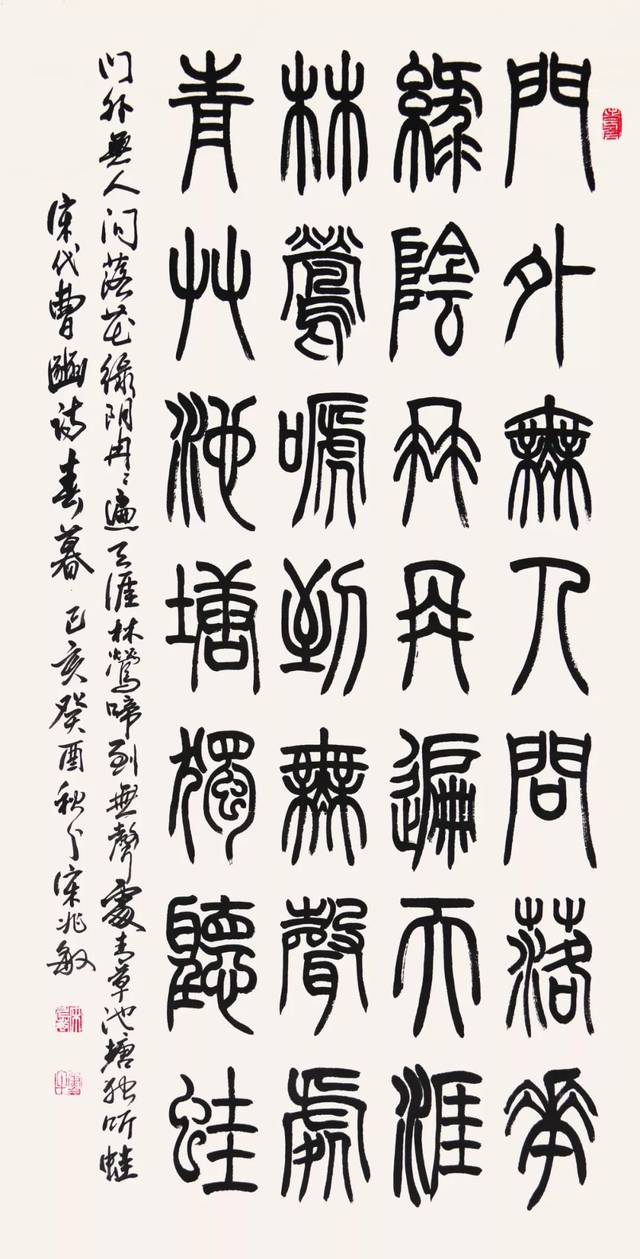 門外無人問落花
綠陰冉冉遍天涯
林鶯啼到無聲處
青艸池塘獨聽蛙
门外無人问落花绿阴冉々遍天涯林鶯啼到無聲處青草池塘独听蛙
宋代曹豳诗春暮 己亥癸酉秋月宋兆敏